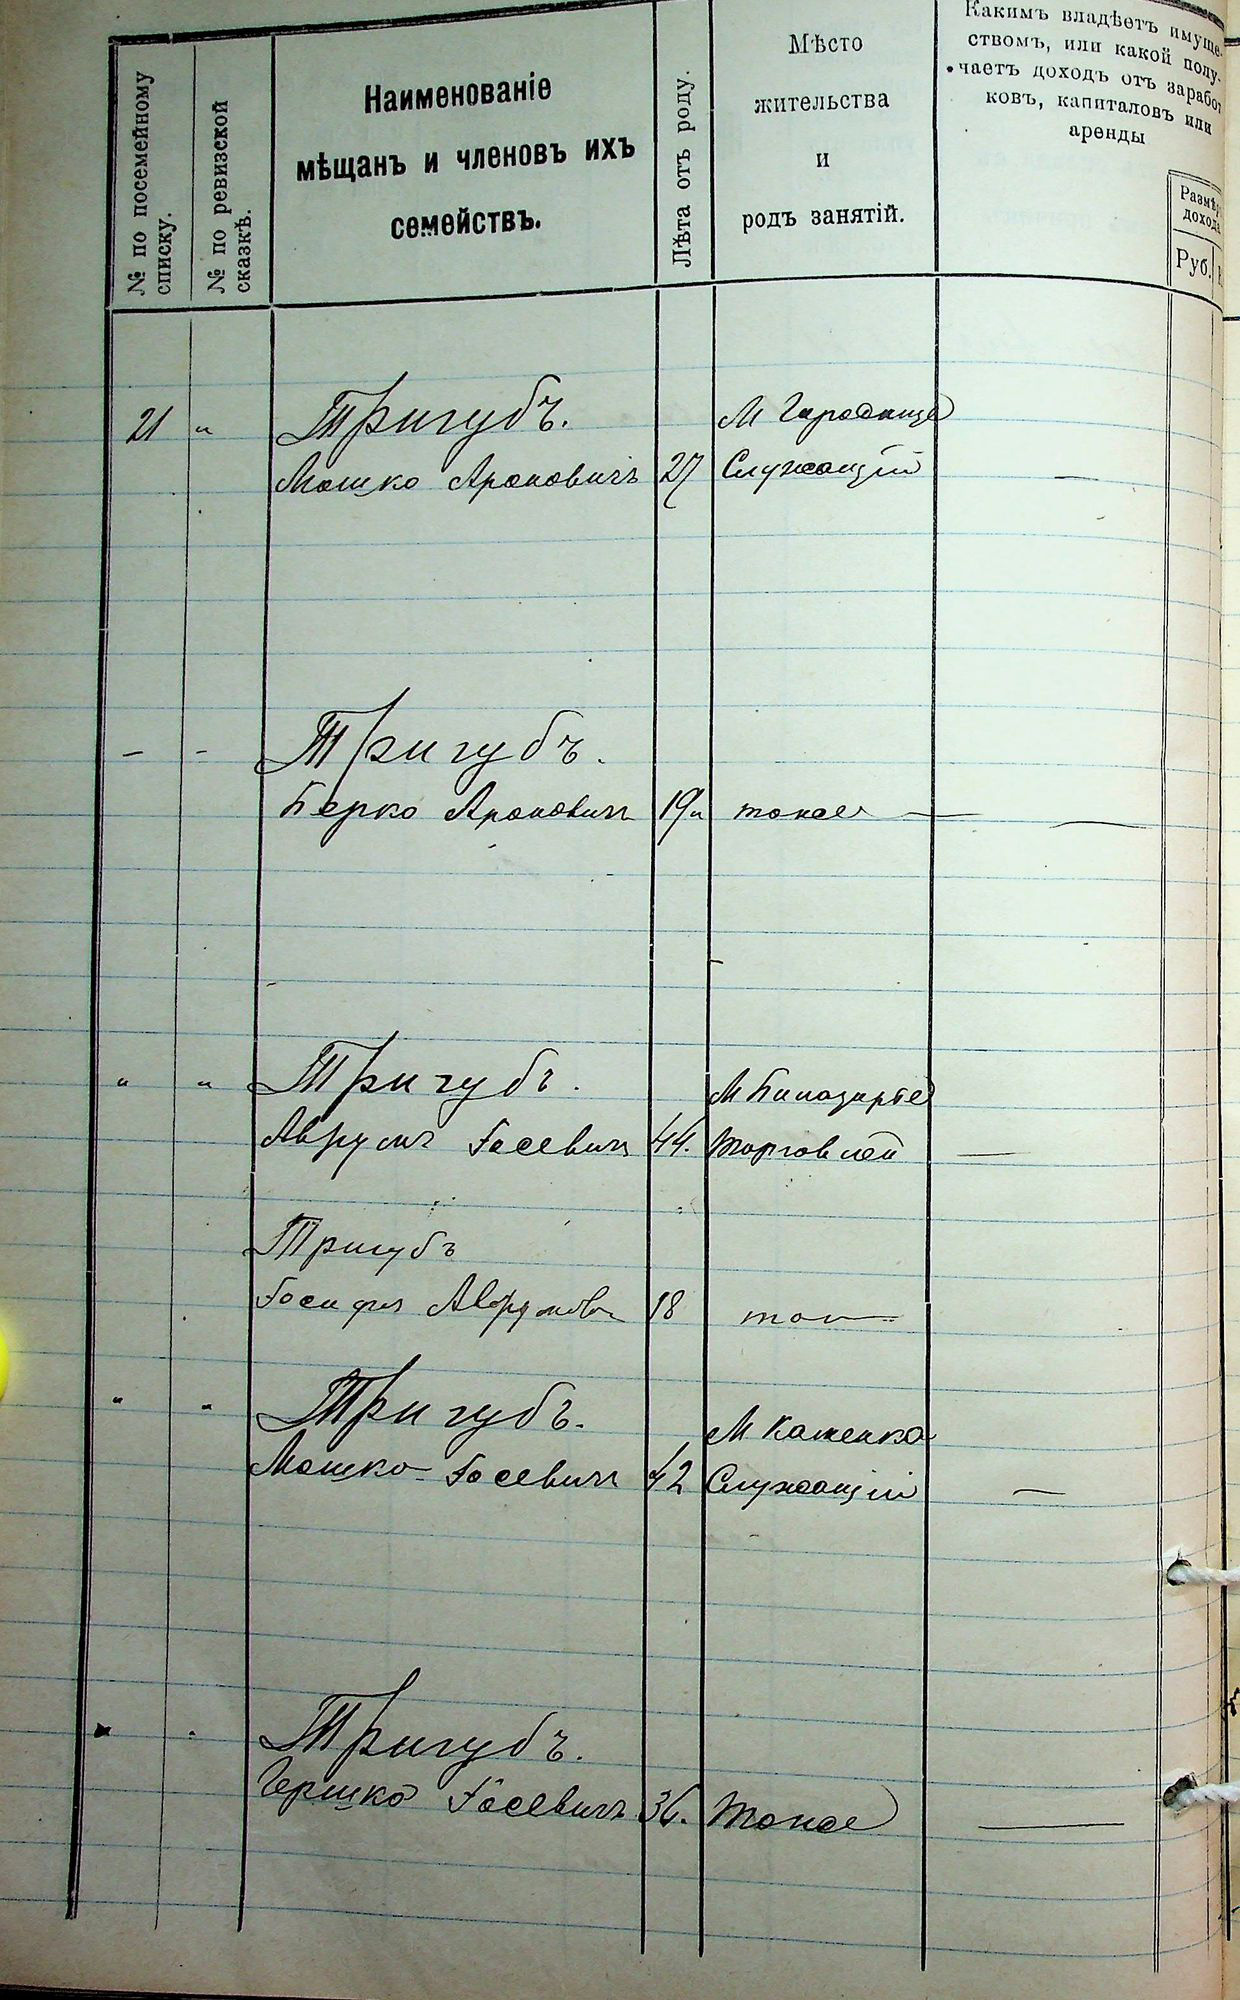 № по посемейному
списку.
№ по ревизской
сказкѣ.
Наименованіе
мѣщанъ и членовъ ихъ
семействъ.
Лѣта отъ роду.
Мѣсто
жительства
и
родъ занятій.
Какимъ владѣетъ имуще-
ствомъ, или какой полу-
чаетъ доходъ отъ заработ
ковъ, капиталовъ или
аренды
Размѣр
дохода
Руб.
21 " Тригубъ. М Городище
Мошко Ароновичъ 27 Служащій —
- - Тригубъ.
Берко Ароновичъ 19 " тоже — —
" " Тригубъ. М
Аврумъ Іосевичъ 44. Торговлей —
Тригубъ
Іосифъ Аврумов 18
" " Тригубъ. М Каменка
Мошко Іосевичъ 42 Служащій —
" " Тригубъ.
Гершко Іосевичъ 36. Тоже —